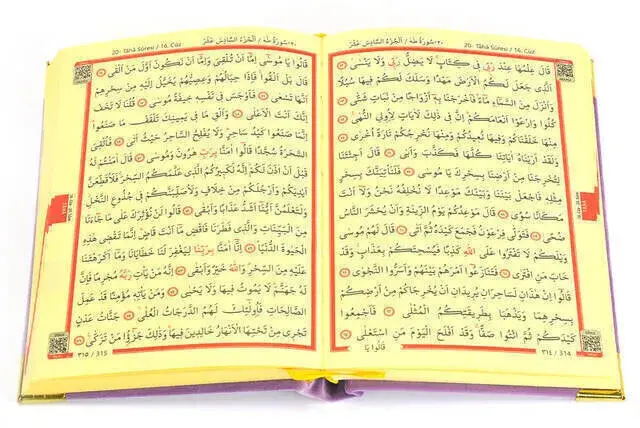 20- Tâhâ Sûresi / 16. Cüz
٢٠- سُورَةُ طٰهٰ / اَلْجُزْءُ السَّادِسَ عَشَرَ
قَالَ عِلْمُهَا عِنْدَ رَبِّي فِي كِتَابٍ لَا يَضِلُّ رَبِّي وَلَا يَنْسٰى
اَلَّذِي جَعَلَ لَكُمُ الْاَرْضَ مَهْدًا وَسَلَكَ لَكُمْ فِيهَا سُبُلًا
وَاَنْزَلَ مِنَ السَّمَاءِ مَاءً فَاَخْرَجْنَا بِهِ اَزْوَاجًا مِنْ نَبَاتٍ شَتّٰى
كُلُوا وَارْعَوْا اَنْعَامَكُمْ اِنَّ فِي ذٰلِكَ لَاٰيَاتٍ لِاُولِي النُّهٰى
مِنْهَا خَلَقْنَاكُمْ وَفِيهَا نُعِيدُكُمْ وَمِنْهَا نُخْرِجُكُمْ تَارَةً اُخْرٰى
وَلَقَدْ اَرَيْنَاهُ اٰيَاتِنَا كُلَّهَا فَكَذَّبَ وَاَبٰى قَالَ اَجِئْتَنَا
لِتُخْرِجَنَا مِنْ اَرْضِنَا بِسِحْرِكَ يَا مُوسٰى فَلَنَأْتِيَنَّكَ بِسِحْرٍ
مِثْلِهِ فَاجْعَلْ بَيْنَنَا وَبَيْنَكَ مَوْعِدًا لَا نُخْلِفُهُ نَحْنُ وَلَا اَنْتَ
مَكَانًا سُوًى قَالَ مَوْعِدُكُمْ يَوْمُ الزِّينَةِ وَاَنْ يُحْشَرَ النَّاسُ
ضُحًى فَتَوَلّٰى فِرْعَوْنُ فَجَمَعَ كَيْدَهُ ثُمَّ اَتٰى قَالَ لَهُمْ مُوسٰى
وَيْلَكُمْ لَا تَفْتَرُوا عَلَى اللّٰهِ كَذِبًا فَيُسْحِتَكُمْ بِعَذَابٍ وَقَدْ
خَابَ مَنِ افْتَرٰى فَتَنَازَعُوا اَمْرَهُمْ بَيْنَهُمْ وَاَسَرُّوا النَّجْوٰى
قَالُوا اِنْ هٰذَانِ لَسَاحِرَانِ يُرِيدَانِ اَنْ يُخْرِجَاكُمْ مِنْ اَرْضِكُمْ
بِسِحْرِهِمَا وَيَذْهَبَا بِطَرِيقَتِكُمُ الْمُثْلٰى فَاَجْمِعُوا
كَيْدَكُمْ ثُمَّ ائْتُوا صَفًّا وَقَدْ اَفْلَحَ الْيَوْمَ مَنِ اسْتَعْلٰى
قَالُوا يَا
٣١٤ / 314
20- Tâhâ Sûresi / 16. Cüz
٢٠- سُورَةُ طٰهٰ / اَلْجُزْءُ السَّادِسَ عَشَرَ
قَالُوا يَا مُوسٰى اِمَّا اَنْ تُلْقِيَ وَاِمَّا اَنْ نَكُونَ اَوَّلَ مَنْ اَلْقٰى
قَالَ بَلْ اَلْقُوا فَاِذَا حِبَالُهُمْ وَعِصِيُّهُمْ يُخَيَّلُ اِلَيْهِ مِنْ سِحْرِهِمْ
اَنَّهَا تَسْعٰى فَاَوْجَسَ فِي نَفْسِهِ خِيفَةً مُوسٰى قُلْنَا لَا تَخَفْ
اِنَّكَ اَنْتَ الْاَعْلٰى وَاَلْقِ مَا فِي يَمِينِكَ تَلْقَفْ مَا صَنَعُوا
اِنَّمَا صَنَعُوا كَيْدُ سَاحِرٍ وَلَا يُفْلِحُ السَّاحِرُ حَيْثُ اَتٰى فَاُلْقِيَ
السَّحَرَةُ سُجَّدًا قَالُوا اٰمَنَّا بِرَبِّ هٰرُونَ وَمُوسٰى قَالَ اٰمَنْتُمْ لَهُ
قَبْلَ اَنْ اٰذَنَ لَكُمْ اِنَّهُ لَكَبِيرُكُمُ الَّذِي عَلَّمَكُمُ السِّحْرَ فَلَاُقَطِّعَنَّ
اَيْدِيَكُمْ وَاَرْجُلَكُمْ مِنْ خِلَافٍ وَلَاُصَلِّبَنَّكُمْ فِي جُذُوعِ النَّخْلِ
وَلَتَعْلَمُنَّ اَيُّنَا اَشَدُّ عَذَابًا وَاَبْقٰى قَالُوا لَنْ نُؤْثِرَكَ عَلٰى مَا جَاءَنَا
مِنَ الْبَيِّنَاتِ وَالَّذِي فَطَرَنَا فَاقْضِ مَا اَنْتَ قَاضٍ اِنَّمَا تَقْضِي هٰذِهِ
الْحَيٰوةَ الدُّنْيَا اِنَّا اٰمَنَّا بِرَبِّنَا لِيَغْفِرَ لَنَا خَطَايَانَا وَمَا اَكْرَهْتَنَا
عَلَيْهِ مِنَ السِّحْرِ وَاللّٰهُ خَيْرٌ وَاَبْقٰى اِنَّهُ مَنْ يَأْتِ رَبَّهُ مُجْرِمًا فَاِنَّ
لَهُ جَهَنَّمَ لَا يَمُوتُ فِيهَا وَلَا يَحْيٰى وَمَنْ يَأْتِهِ مُؤْمِنًا قَدْ عَمِلَ
الصَّالِحَاتِ فَاُولٰئِكَ لَهُمُ الدَّرَجَاتُ الْعُلٰى جَنَّاتُ عَدْنٍ
تَجْرِي مِنْ تَحْتِهَا الْاَنْهَارُ خَالِدِينَ فِيهَا وَذٰلِكَ جَزٰؤُا مَنْ تَزَكّٰى
٣١٥ / 315